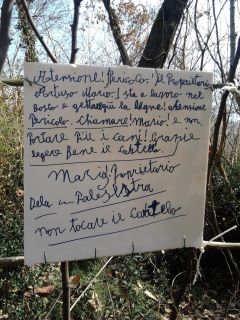 Atensione! Pericolo! Il Proprietario
Artuso Mario! sta a lavoro nel
Bosco e gettagiù la legne! atensione
Pericolo. Chamare! Mario! e non
Portare Più i cani! Grazie
legere Bene il Cartelo
Mario! Proprietario
Dela Palestra
non tocare il Cartelo